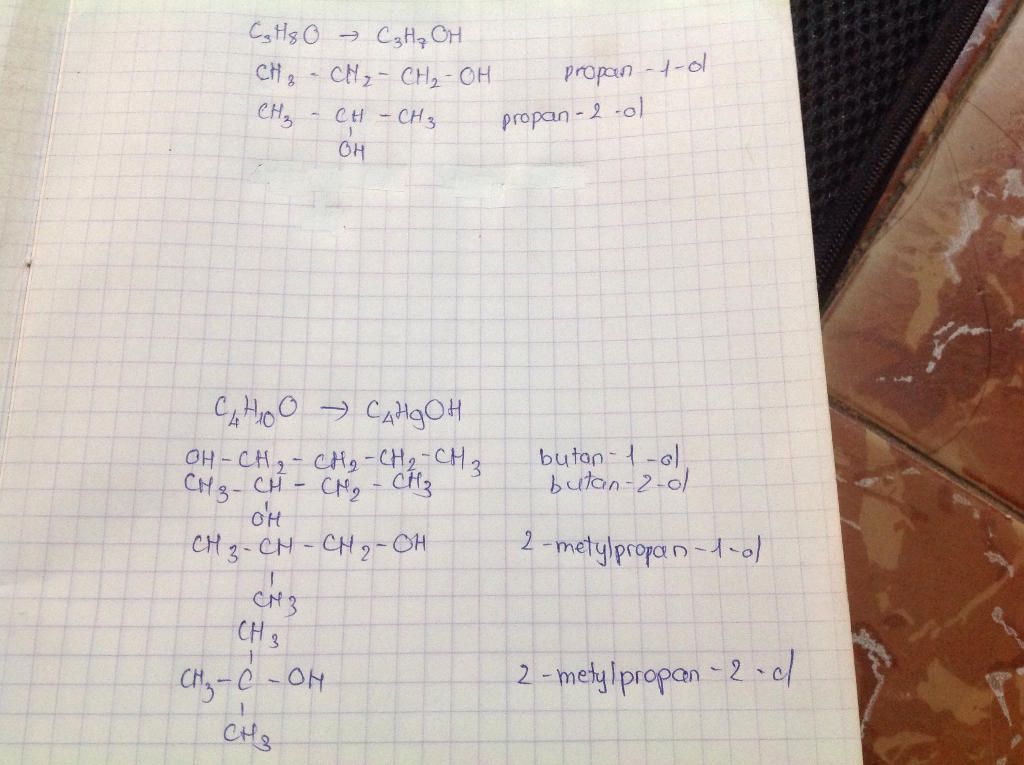 C₃H₈O → C₃H₇OH
CH₃ - CH₂ - CH₂ - OH propan - 1 - ol
CH₃ - CH - CH₃ propan - 2 - ol
OH
C₄H₁₀O → C₄H₉OH
OH - CH₂ - CH₂ - CH₂ - CH₃ butan - 1 - ol
CH₃ - CH - CH₂ - CH₃ butan - 2 - ol
OH
CH₃ - CH - CH₂ - OH 2 - metylpropan - 1 - ol
CH₃
CH₃
CH₃ - C - OH 2 - metylpropan - 2 - ol
CH₃